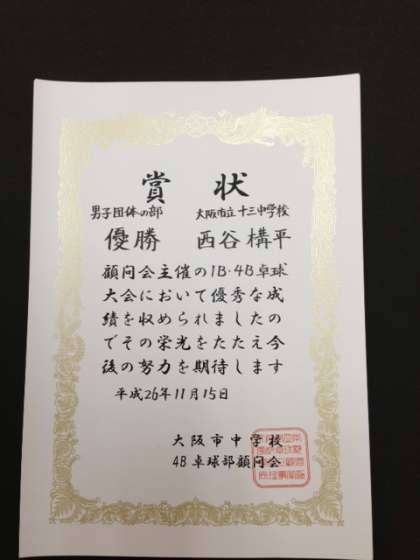 賞 状
男子団体の部 大阪市立十三中学校
優勝 西谷構平
顧問会主催の1B·4B卓球
大会において優秀な成
績を収められましたの
でその栄光をたたえ今
後の努力を期待します
平成26年11月15日
大阪市中学校
4B卓球部顧問会